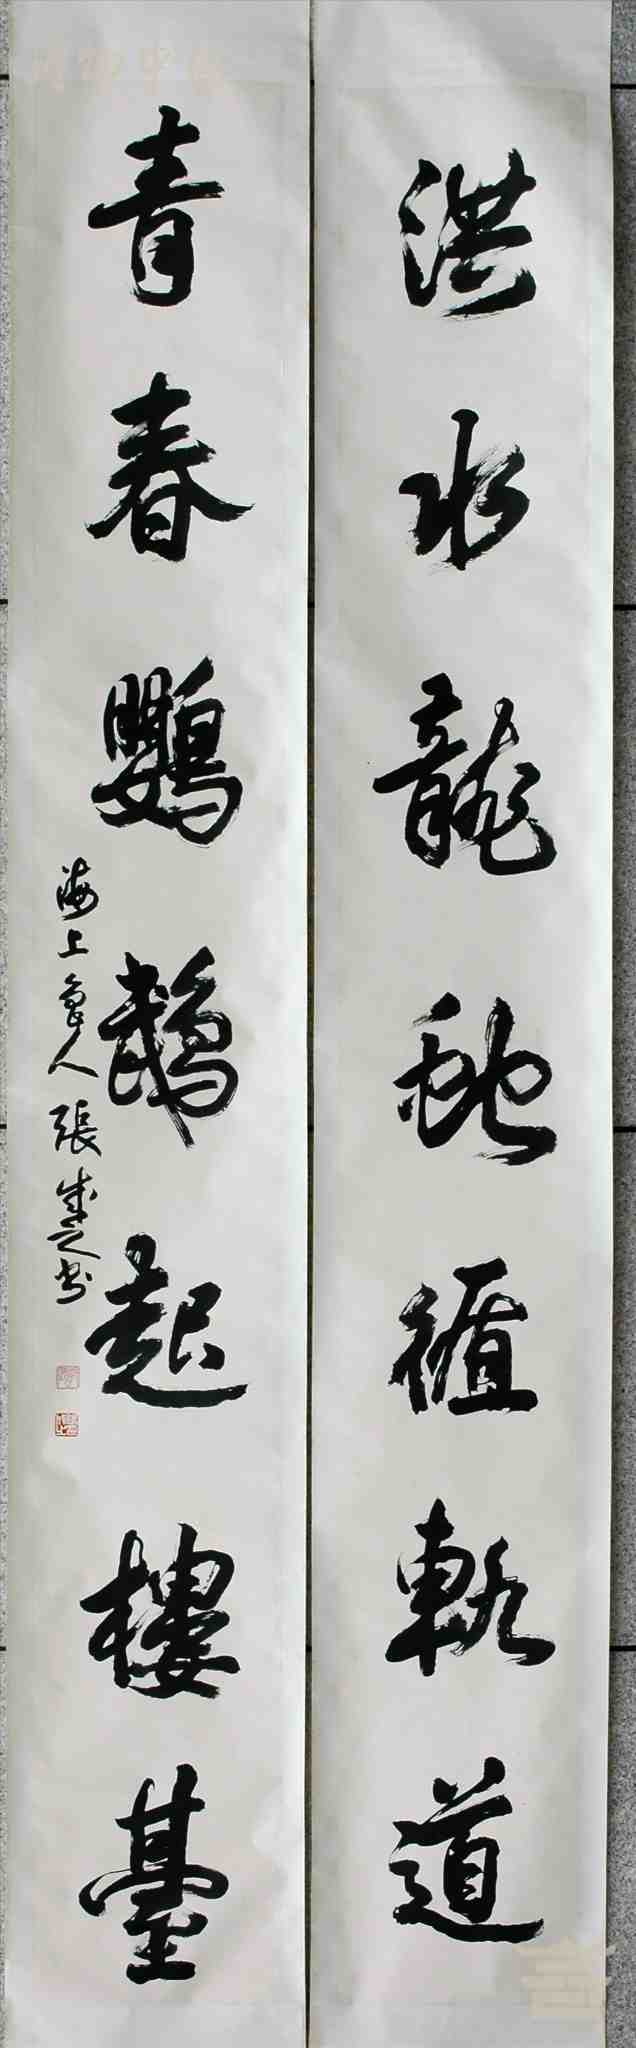 洪水龍蛇循軌道
青春鸚鵡起樓臺
海上魯人張成之書